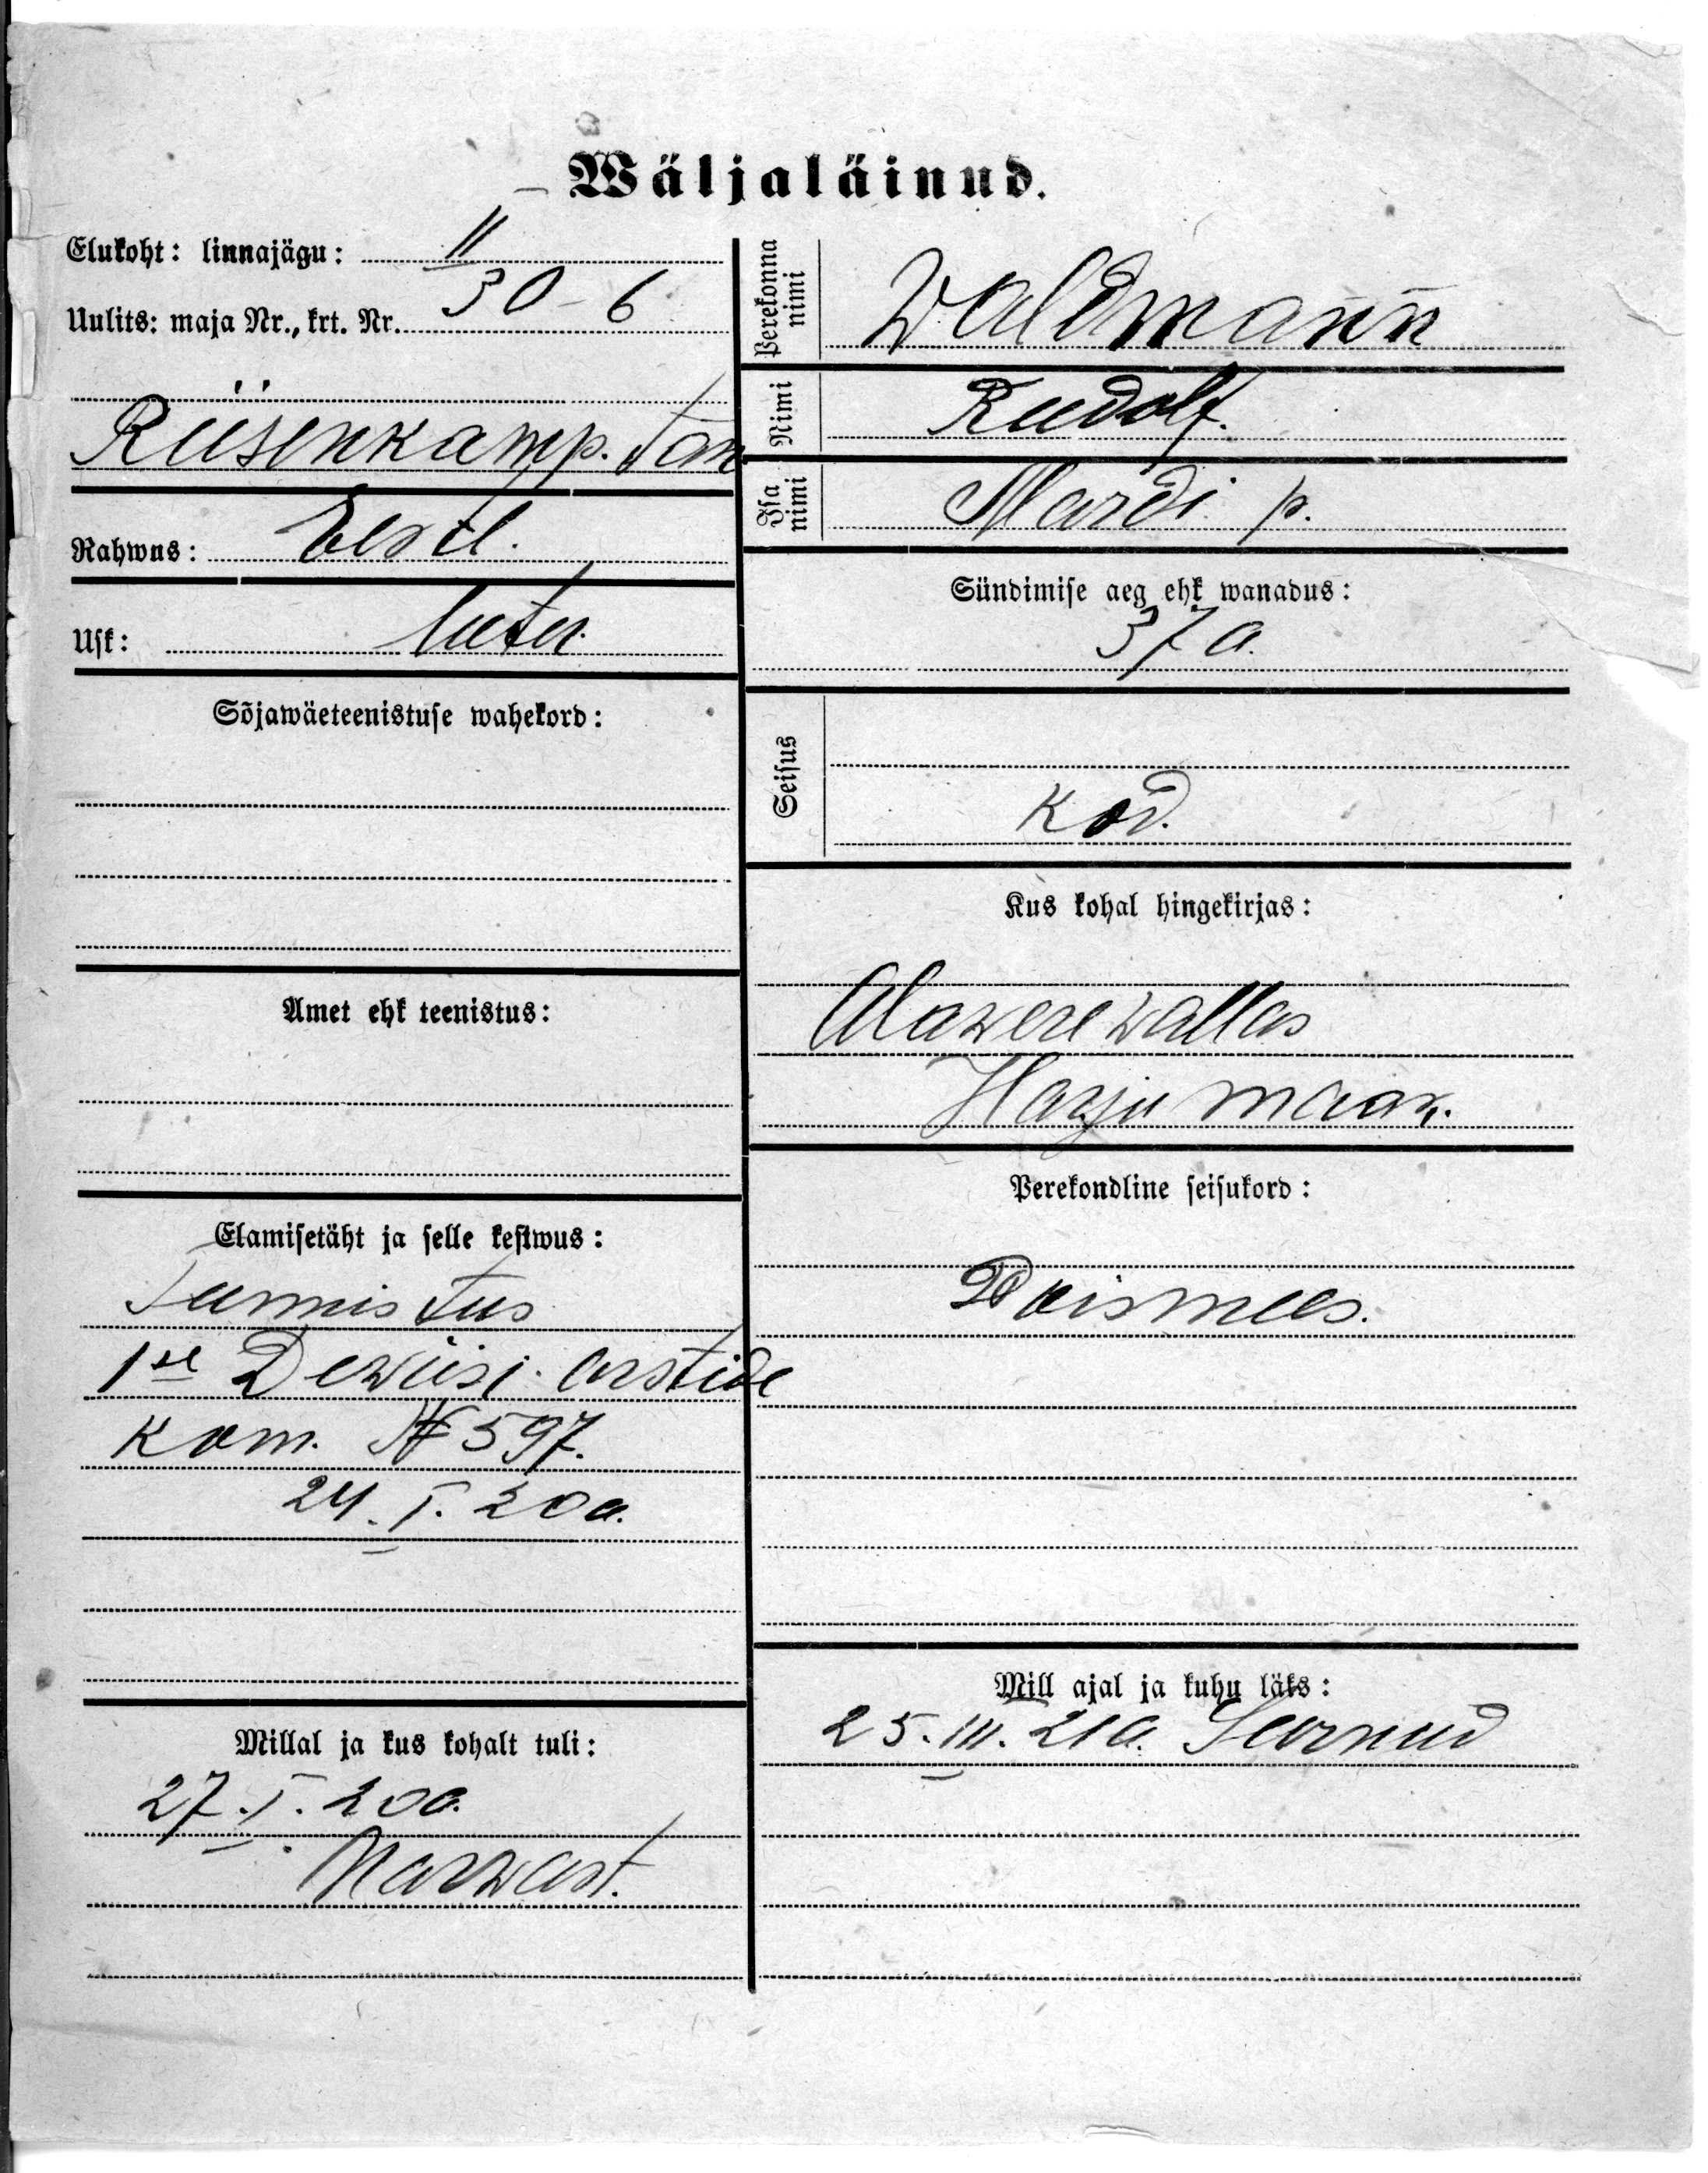 Wäljaläinud.
Elukoht: linnajägu: II
Uulits: maja Nr., krt. Nr. 30 - 6
Rüsenkamp. tän
Rahwus: Eestl.
Usk: luter.
Sõjawäeteenistuse wahekord:
Amet ehk teenistus:
Elamisetäht ja selle kestwus:
Tunnistus
1se Dewiisi arstide
Kom. № 597.
24. I. 20 a.
Millal ja kus kohalt tuli:
27. I. 20 a.
Narwast.
Perekonna nimi Waldmann
Nimi Rudolf.
Isa nimi Mardi p.
Sündimise aeg ehk wanadus:
37 a.
Seisus
Kod.
Kus kohal hingekirjas:
Alawere wallas
Harju maak.
Perekondline seisukord:
Poismees.
Mill ajal ja kuhu läks:
25. III. 21 a. Surnud